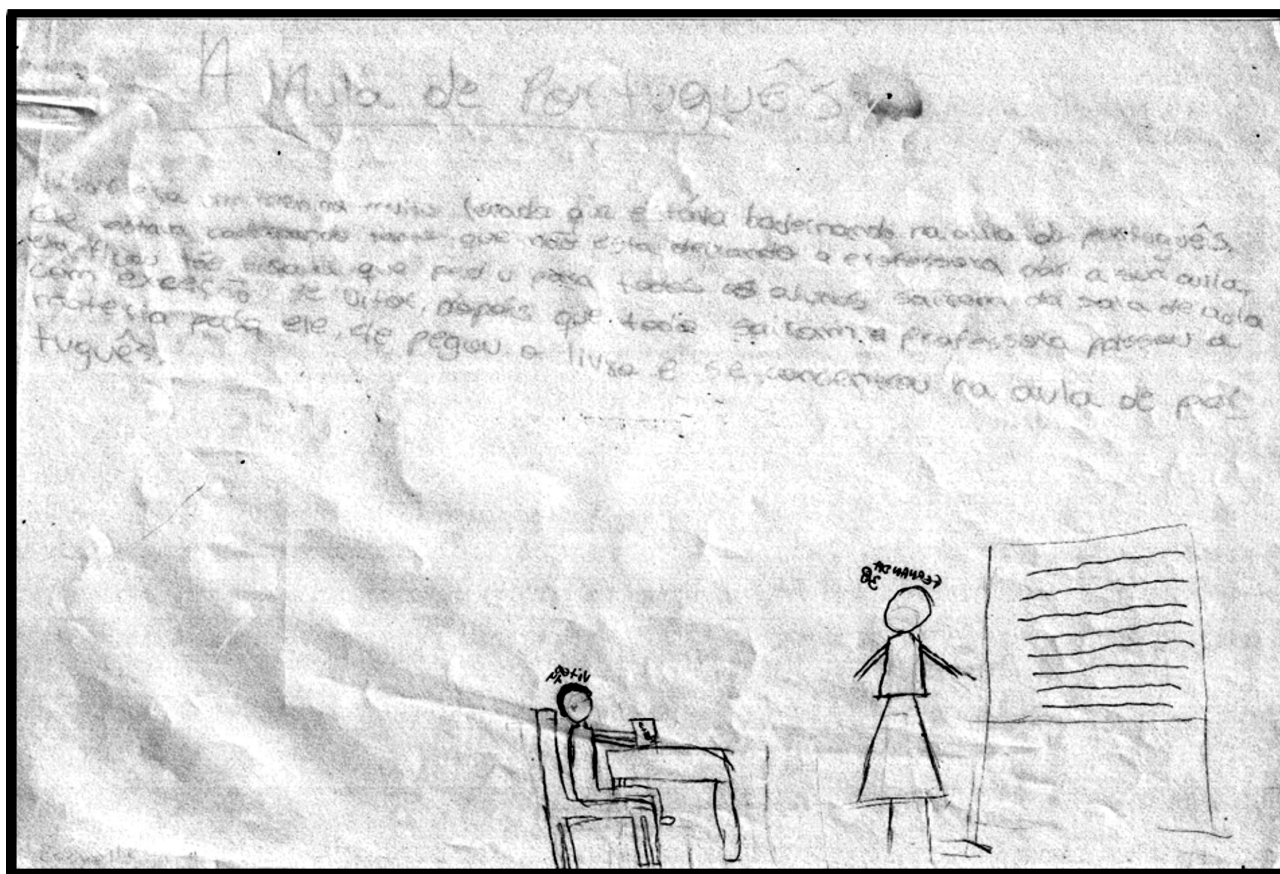 A Aula de Português
era um menino muito levado que estava badernando na aula de português.
Ele estava badernando tanto que não esta deixando a professora dar a sua aula,
ela ficou tão que pediu para todos os alunos sairem da sala de aula
com exceção de Vitor, depois que todos sairam a professora passou a
materia para ele, ele pegou o livro e se concentrou na aula de por
tuguês.
FERNANDA
Vitor